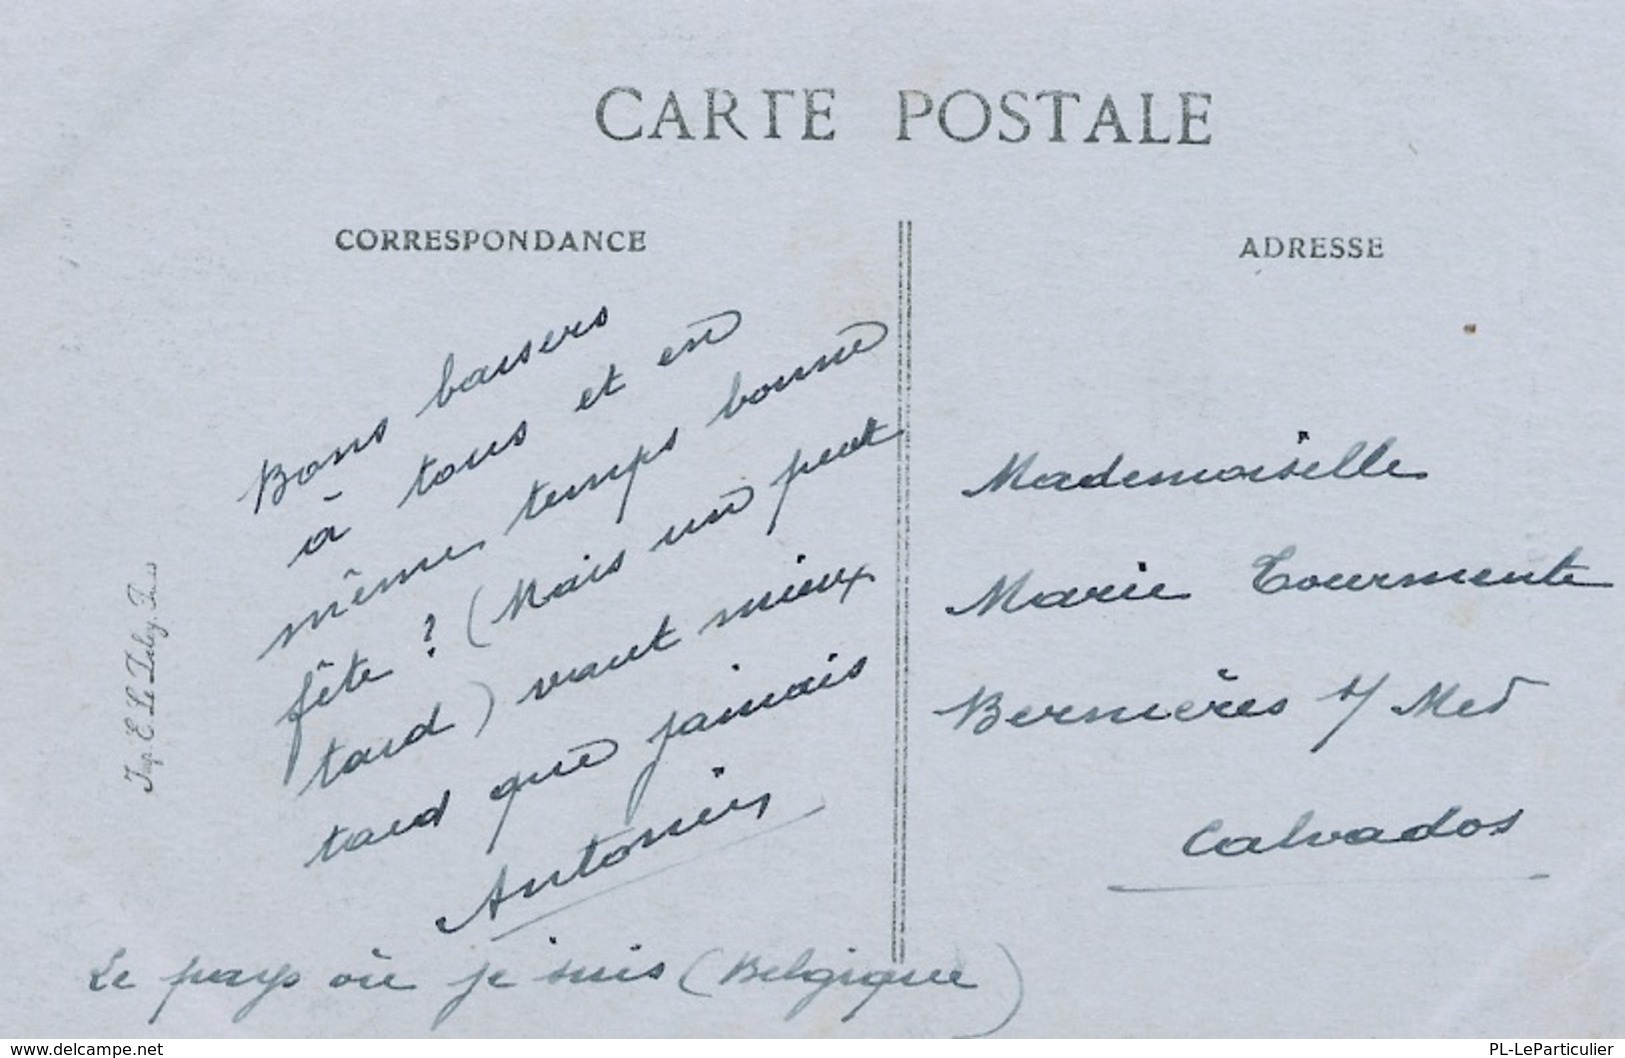 CARTE POSTALE
CORRESPONDANCE
Bons baisers
à tous et en
même temps bonne
fête ? (Mais un peut
tard) vaut mieux
tard que jamais
Le pays où je suis (Belgique)
ADRESSE
Mademoiselle
Marie Tourmente
Bernières s/ Mer
Calvados
Imp. E. Le
www.delcampe.net
PL-LeParticulier